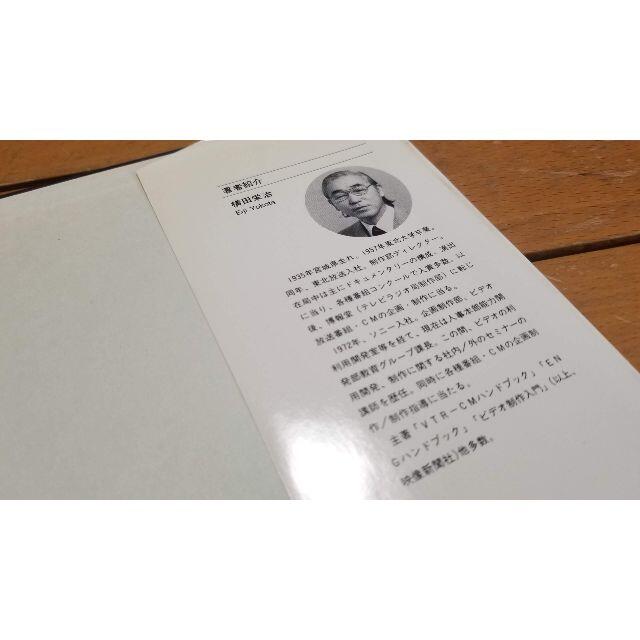 著者紹介
横田栄治
Eiji Yokota
1935年宮城県生れ。1957年東北大学卒業。
同年、東北放送入社。制作部ディレクター。
在局中は主にドキュメンタリーの構成、演出
に当り、各種番組コンクールで入賞多数。以
後、博報堂(テレビラジオ局制作部)に転じ
放送番組・CMの企画・制作に当る。
1972年、ソニー入社。企画制作部、ビデオ
利用開発室等を経て、現在は人事本部能力開
発部教育グループ課長。この間、ビデオの利
用開発、制作に関する社内/外のセミナーの
講師を歴任。同時に各種番組・CMの企画制
作/制作指導に当たる。
主著「VTR-CMハンドブック」「EN
Gハンドブック」「ビデオ制作入門」(以上、
映像新聞社)他多数。